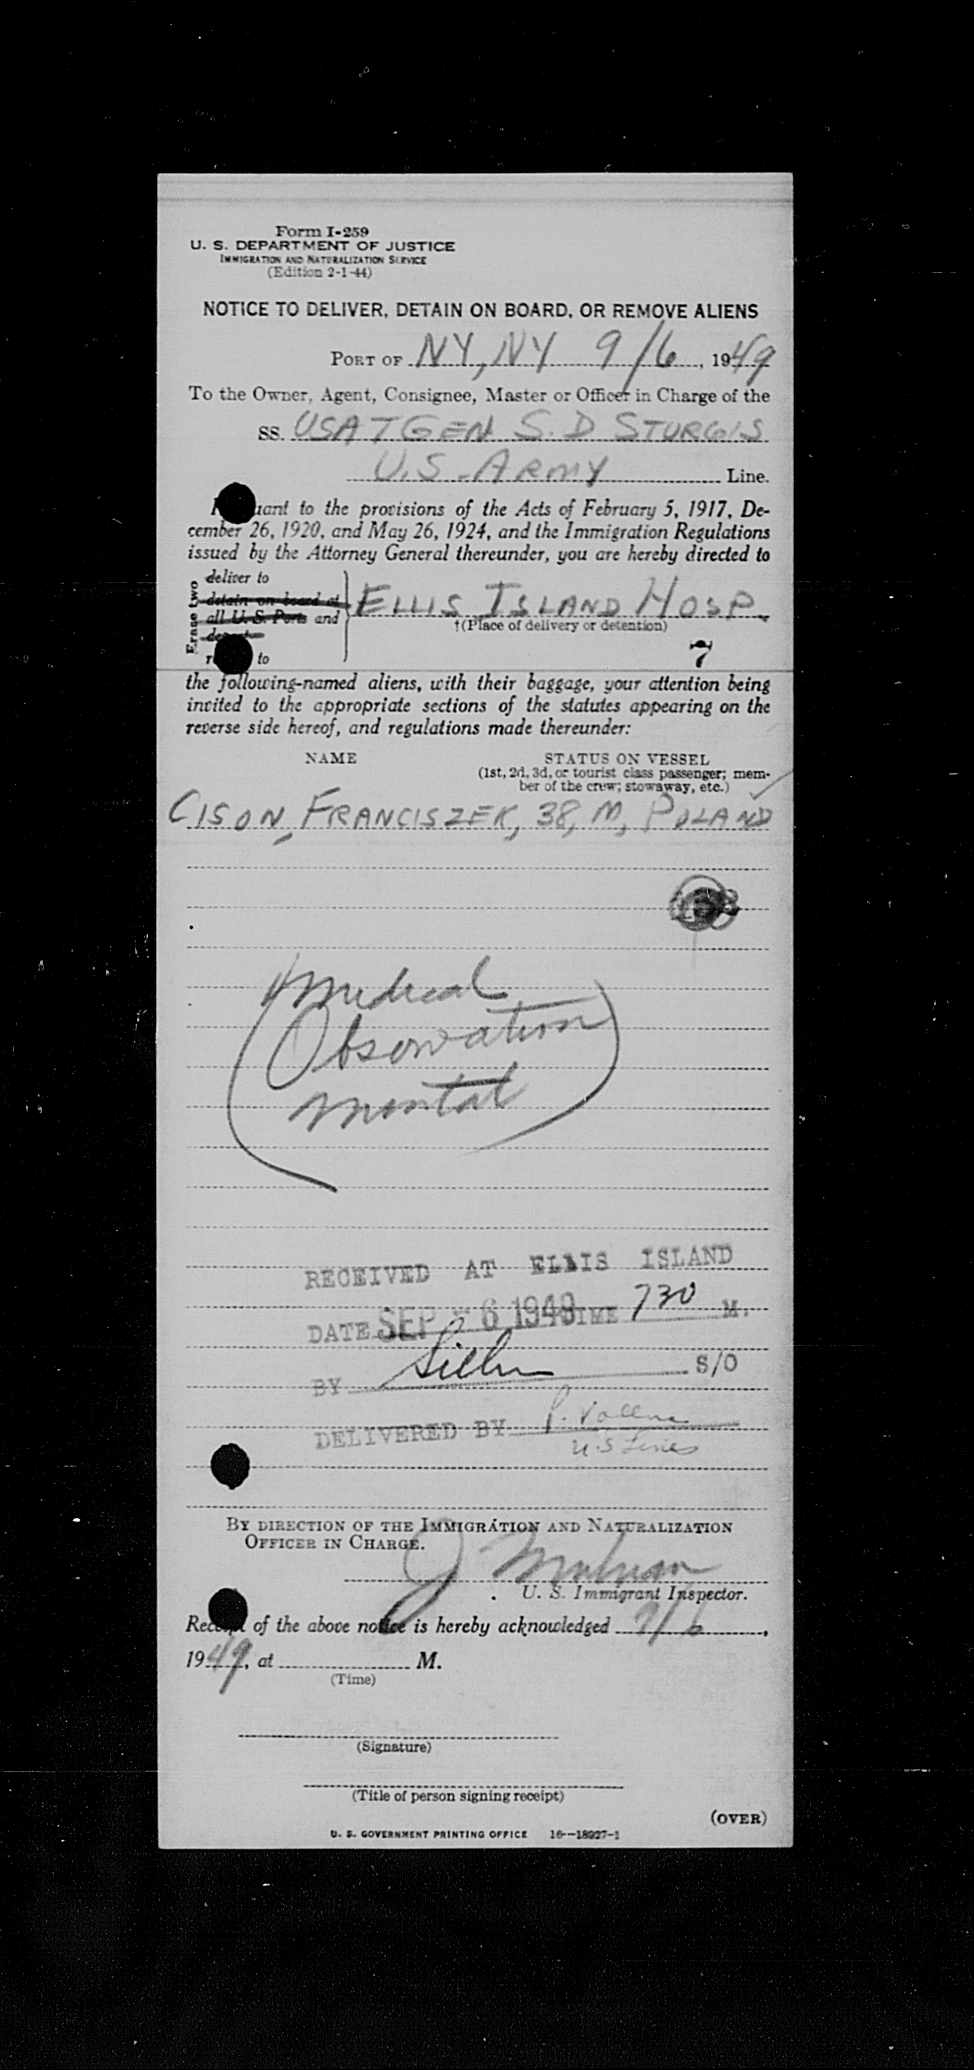 Form I-259
U. S. DEPARTMENT OF JUSTICE
IMMIGRATION AND NATURALIZATION SERVICE
(Edition 2-1-44)
NOTICE TO DELIVER, DETAIN ON BOARD, OR REMOVE ALIENS
PORT OF NY, NY 9/6, 1949
To the Owner, Agent, Consignee, Master or Officer in Charge of the
SS. USAT GEN S. D STURGIS
U.S. ARMY Line.
to the provisions of the Acts of February 5, 1917, De-
cember 26, 1920, and May 26, 1924, and the Immigration Regulations
issued by the Attorney General thereunder, you are hereby directed to
Erase two
deliver to
detain on board at
all U. S. Ports and
to
ELLIS ISLAND HOSP.
†(Place of delivery or detention)
7
the following-named aliens, with their baggage, your attention being
invited to the appropriate sections of the statutes appearing on the
reverse side hereof, and regulations made thereunder:
NAME STATUS ON VESSEL
(1st, 2d, 3d, or tourist class passenger; mem-
ber of the crew; stowaway, etc.)
CISON, FRANCISZEK, 38, M, POLAND
(Medical
Observation
mental)
RECEIVED AT ELLIS ISLAND
DATE SEP - 6 1949 TIME 730 M.
BY S/O
DELIVERED BY P.
U.S Lines
BY DIRECTION OF THE IMMIGRATION AND NATURALIZATION
OFFICER IN CHARGE.
J
U. S. Immigrant Inspector.
Receipt of the above notice is hereby acknowledged 9/6,
1949, at M.
(Time)
(Signature)
(Title of person signing receipt)
(OVER)
U. S. GOVERNMENT PRINTING OFFICE 16—18927-1